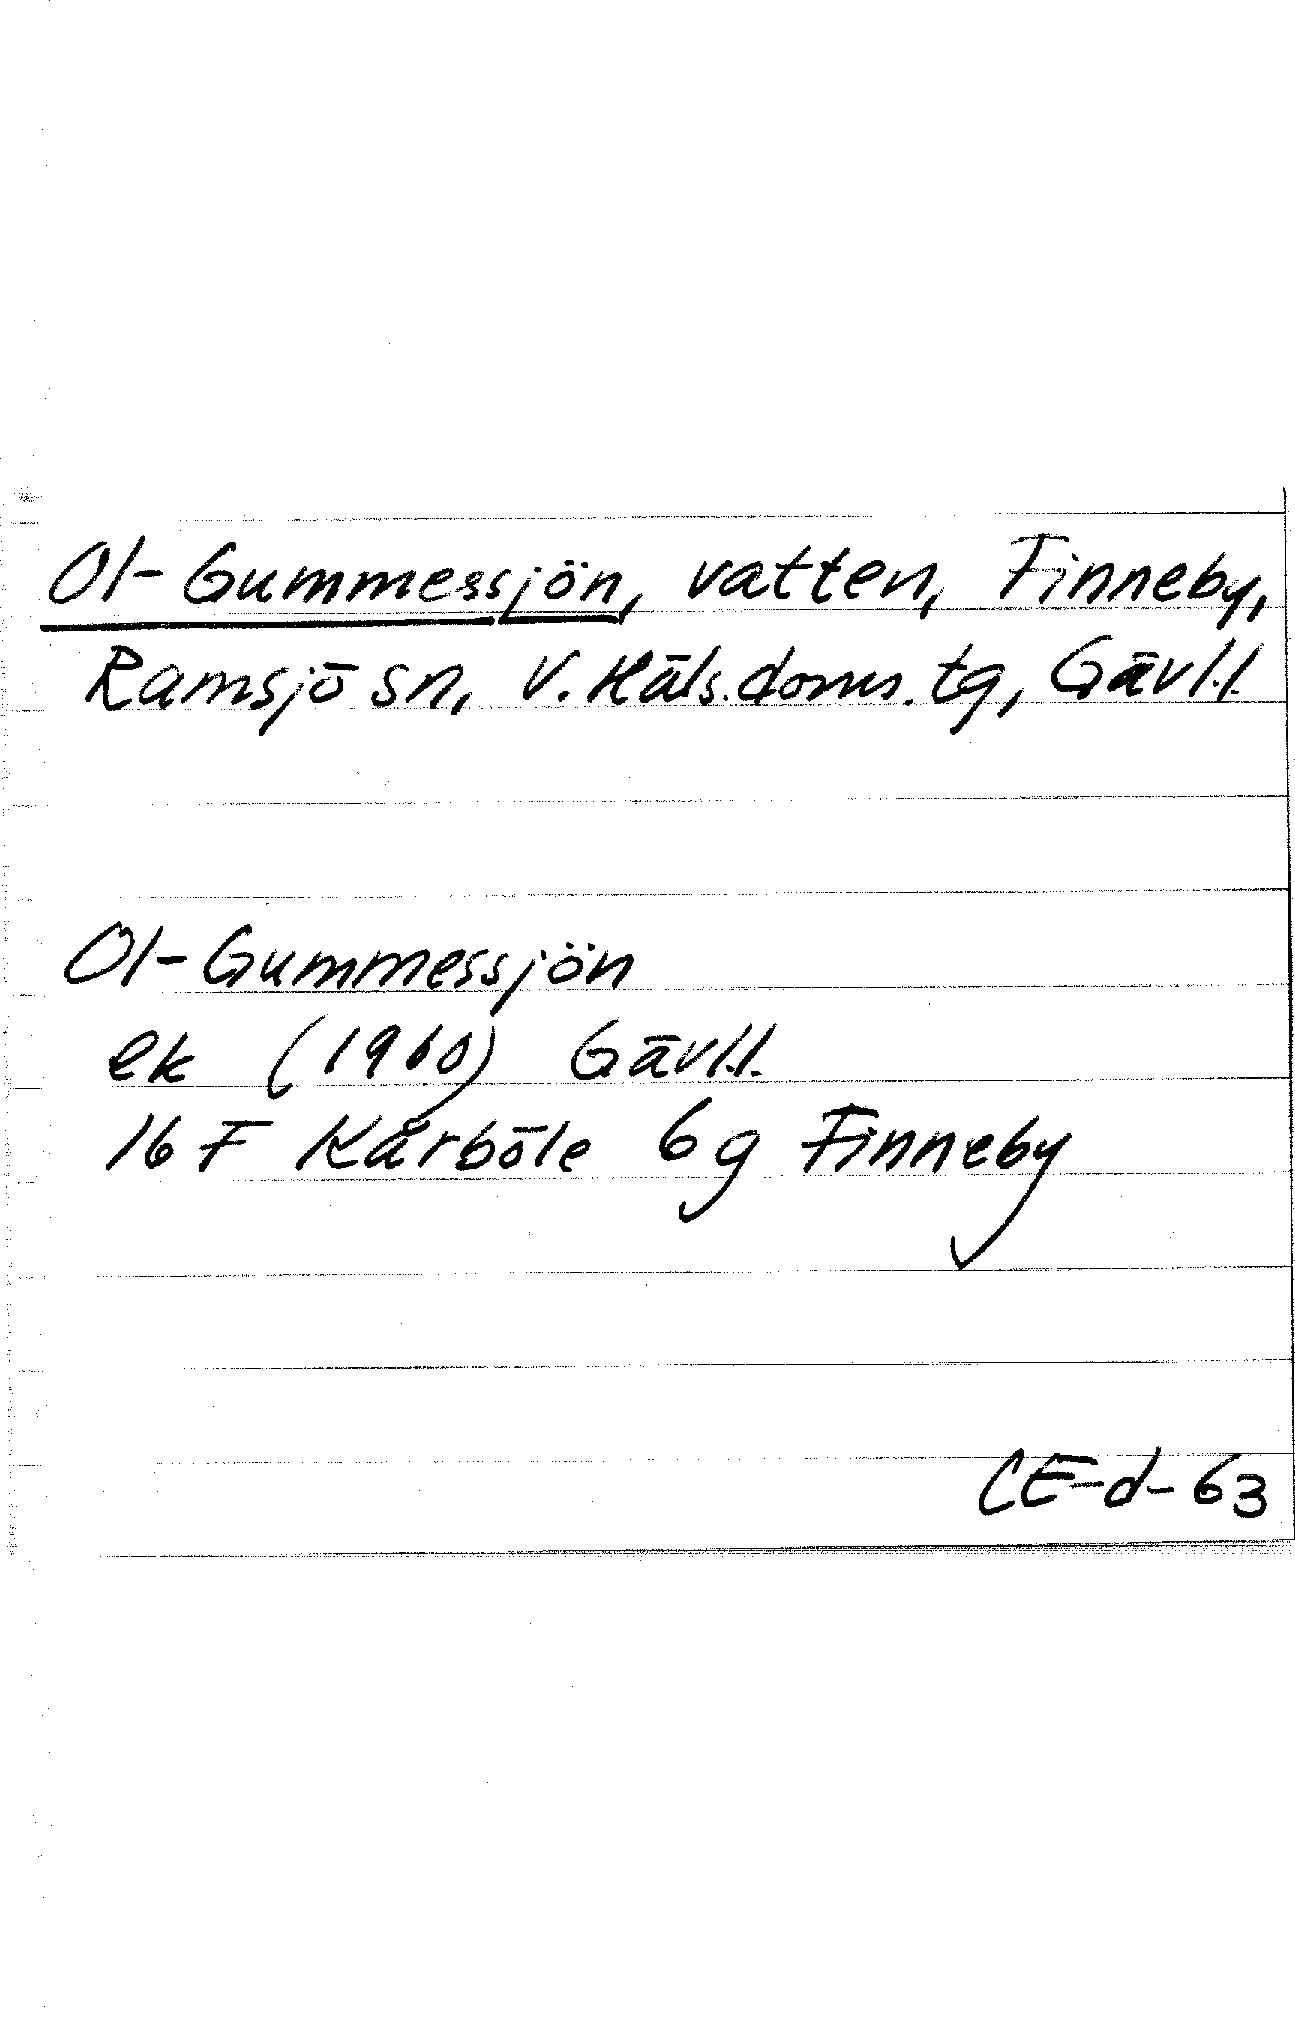 Ol-Gummessjön, vatten, Finneby,
Ramsjö sn, V. Häls. doms. tg, Gävl.l.
Ol-Gummessjön
ek (1960) Gävl.l.
16 F Kårböle 6g Finneby
CE-d-63